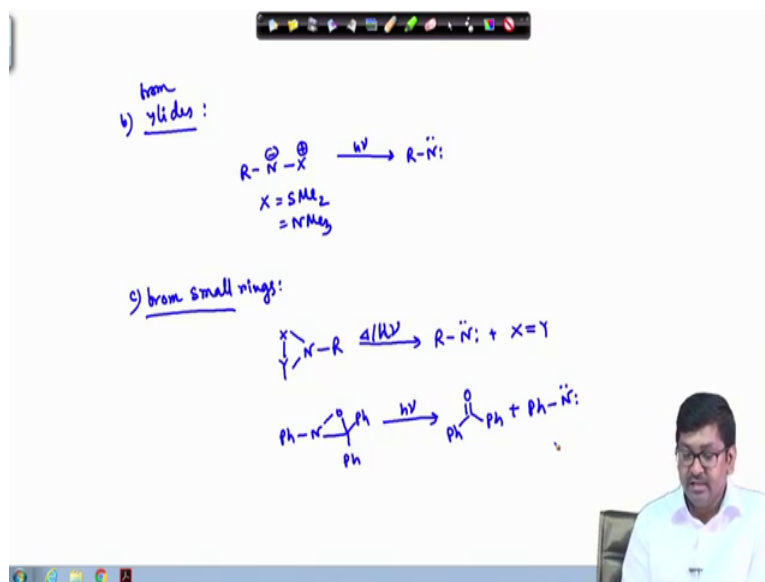 from
b) ylides :
R-N⊖-X⊕ hν→ R-N̈:
X = SMe2
= NMe3
c) from small rings:
X Y N-R Δ/hν→ R-N̈: + X=Y
Ph-N O Ph Ph hν→ O Ph Ph + Ph-N̈: